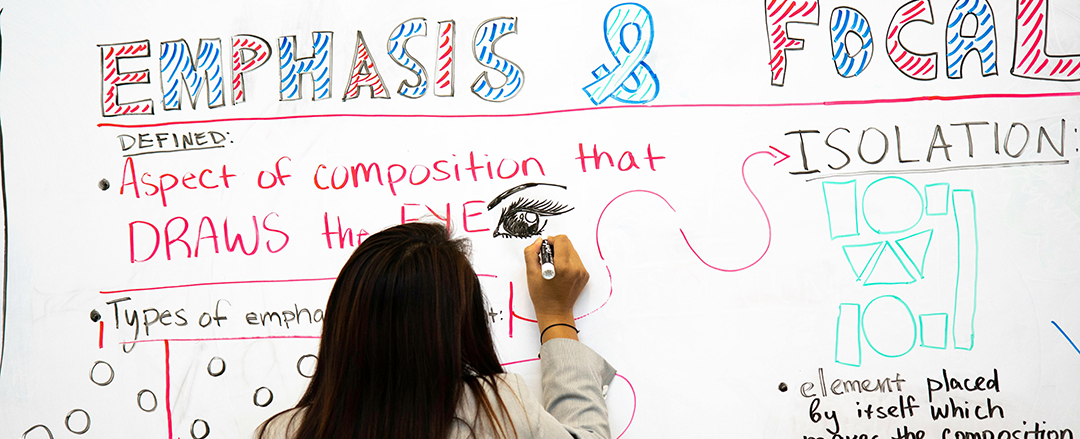 EMPHASIS & FOCAL
DEFINED:
• Aspect of composition that
DRAWS the EYE
• Types of
ISOLATION:
• element placed
by itself which
moves the composition